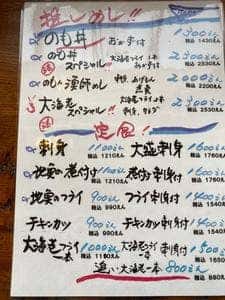 推しめし!!
のも丼 おかず付 1300えん
税込 1430えん
のも丼 スペシャル!! 大海老フライ1本 おかず付 2300えん
のもん漁師めし 刺身 2000えん
税込 2200えん
大海老スペシャル!! 大海老フライ2本 刺身 2300えん
税込 2530えん
定食!!
刺身 1100えん 大盛刺身 1600えん
税込 1210えん 税込 1760えん
地魚の煮付け 1100えん 煮付け刺身付
税込 1210えん
地魚のフライ 900えん フライ刺身付 1400えん
税込 990えん 税込 1540えん
チキンカツ 900えん チキンカツ刺身付 1400えん
税込 990えん 税込 1540えん
大海老フライ一本 1000えん 大海老フライ一本 刺身付 1500えん
税込 1100えん
追い大海老一本 800えん
税込 880えん